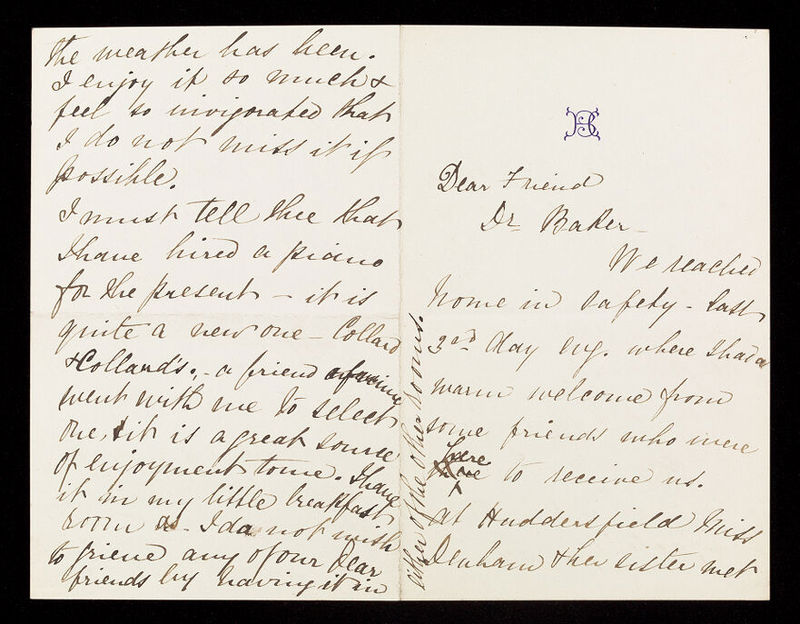 Dear Friend
Dr Baker -
We reached
home in safety - last
2nd day eng. where I had a
warm welcome from
some friends who were
here
to receive us.
At Huddersfield Miss
Denham & her sister met
the weather has been.
I enjoy it so much &
feel so invigorated that
I do not miss it if
possible.
I must tell thee that
I have hired a piano
for the present - it is
quite a new one - Collard
& Collard's. - a friend of mine
went with me to select
one, & it is a great source
of enjoyment to me. I have
it in my little breakfast
room as I do not wish
to grieve any of our dear
friends by having it in
either of the other rooms.